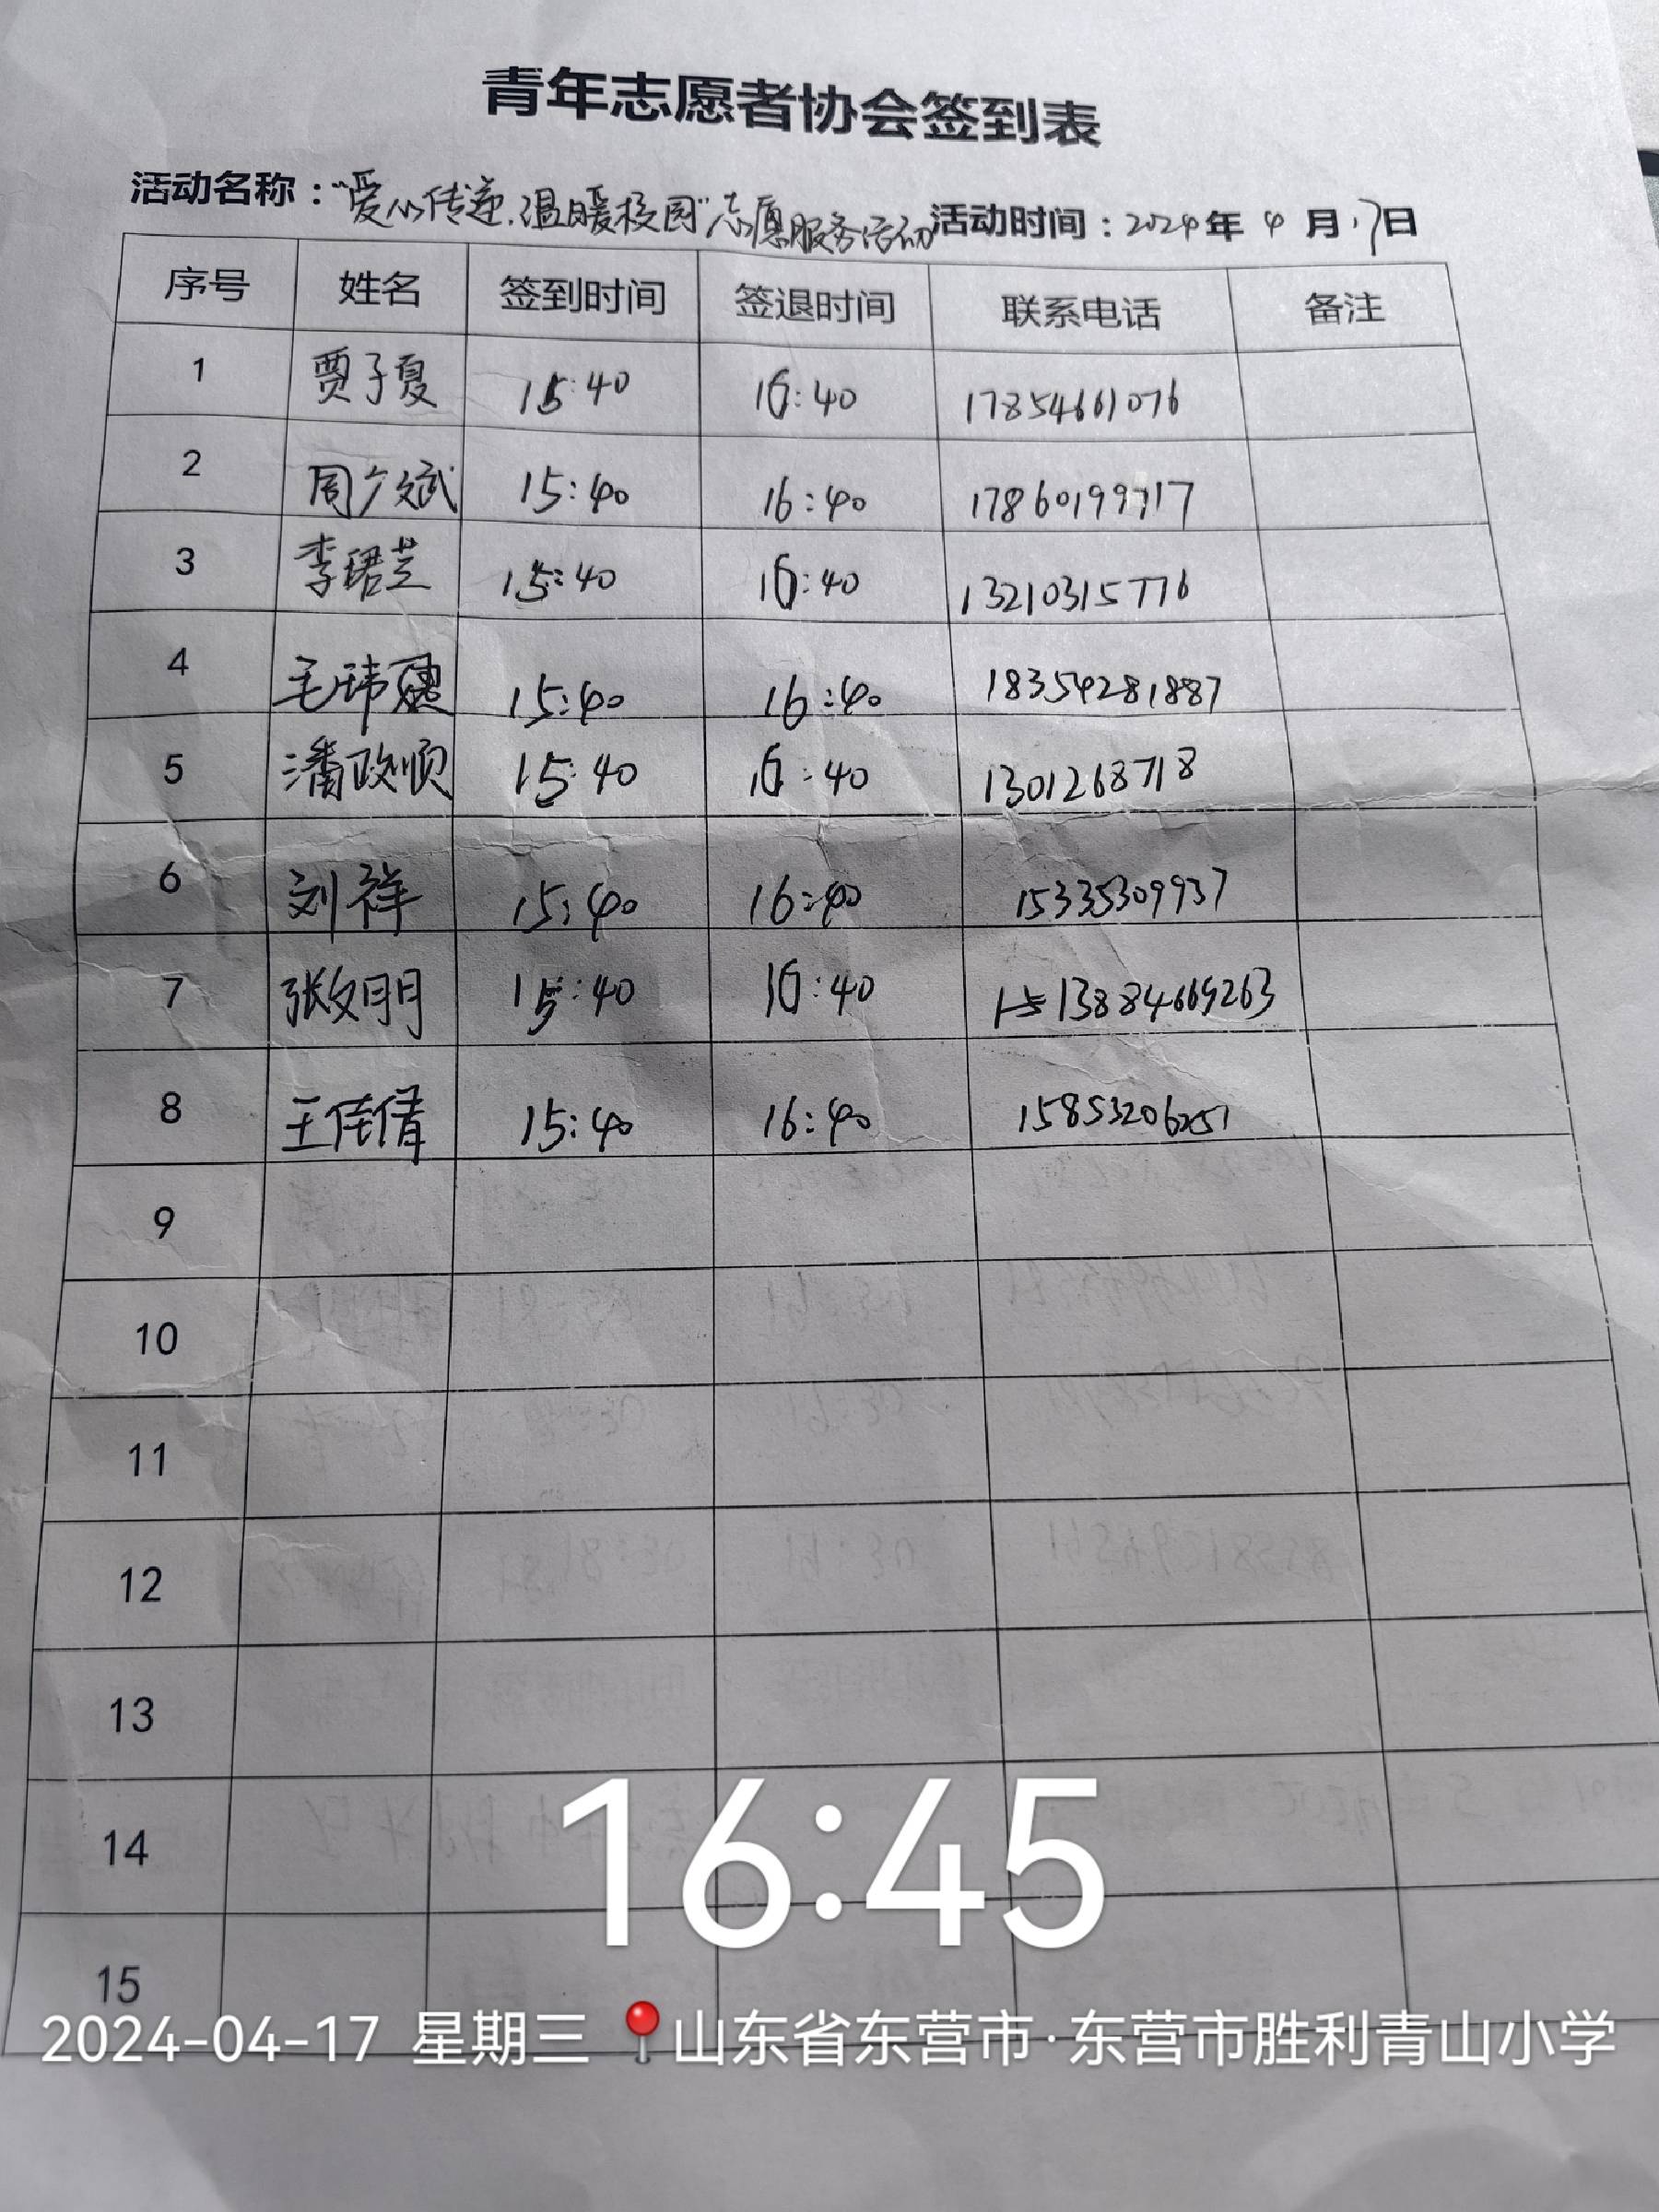 青年志愿者协会签到表
活动名称："爱心传递.温暖校园"志愿服务活动 活动时间：2024年 4 月 17日
序号 姓名 签到时间 签退时间 联系电话 备注
1 贾子夏 15:40 16:40 17854661076
2 周广斌 15:40 16:40 17860199717
3 李珺芝 15:40 16:40 13210315776
4 毛玮 15:40 16:40 18354281887
5 潘政顺 15:40 16:40 1301268718
6 刘祥 15:40 16:40 15335309937
7 张文玥 15:40 16:40 13884669263
8 王倩倩 15:40 16:40
9
10
11
12
13
14
15
16:45
2024-04-17 星期三 山东省东营市·东营市胜利青山小学